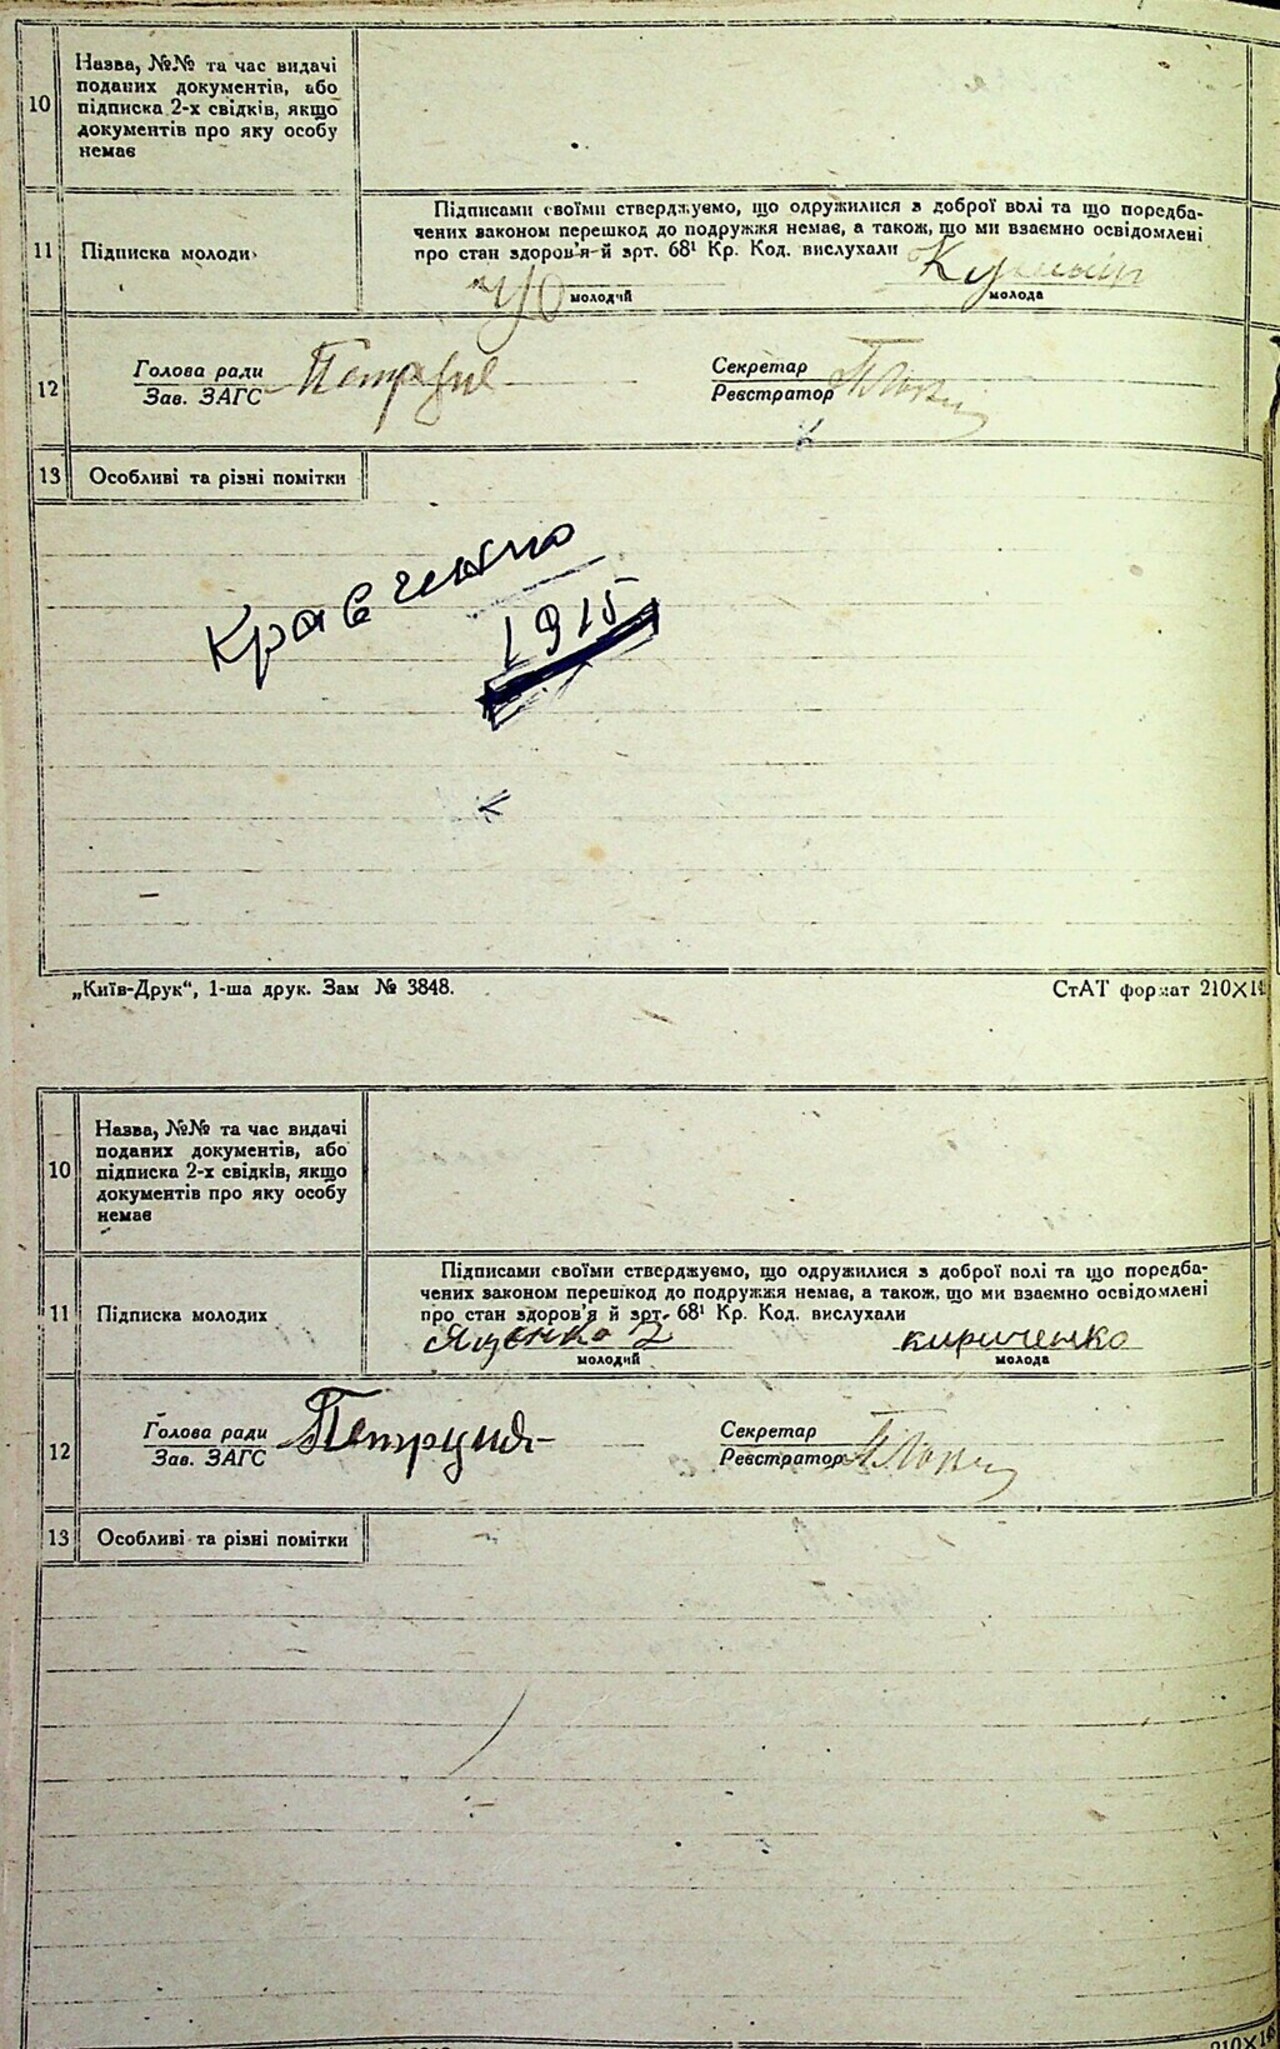 10
Назва, №№ та час видачі
поданих документів, або
підписка 2-х свідків, якщо
документів про яку особу
немає
11
Підписка молодих
Підписами своїми стверджуємо, що одружилися з доброї волі та що поредба-
чених законом перешкод до подружжя немає, а також, що ми взаємно освідомлені
про стан здоров'я й арт. 68¹ Кр. Код. вислухали
молодий
молода
12
Голова ради
Зав. ЗАГС
Секретар
Реєстратор
13
Особливі та різні помітки
Кравченко
1915
„Київ-Друк“, 1-ша друк. Зам № 3848.
СтАТ формат 210×14
10
Назва, №№ та час видачі
поданих документів, або
підписка 2-х свідків, якщо
документів про яку особу
немає
11
Підписка молодих
Підписами своїми стверджуємо, що одружилися з доброї волі та що поредба-
чених законом перешкод до подружжя немає, а також, що ми взаємно освідомлені
про стан здоров'я й арт. 68¹ Кр. Код. вислухали
Яценко
кириченко
молодий
молода
12
Голова ради
Зав. ЗАГС
Секретар
Реєстратор
13
Особливі та різні помітки
210×148